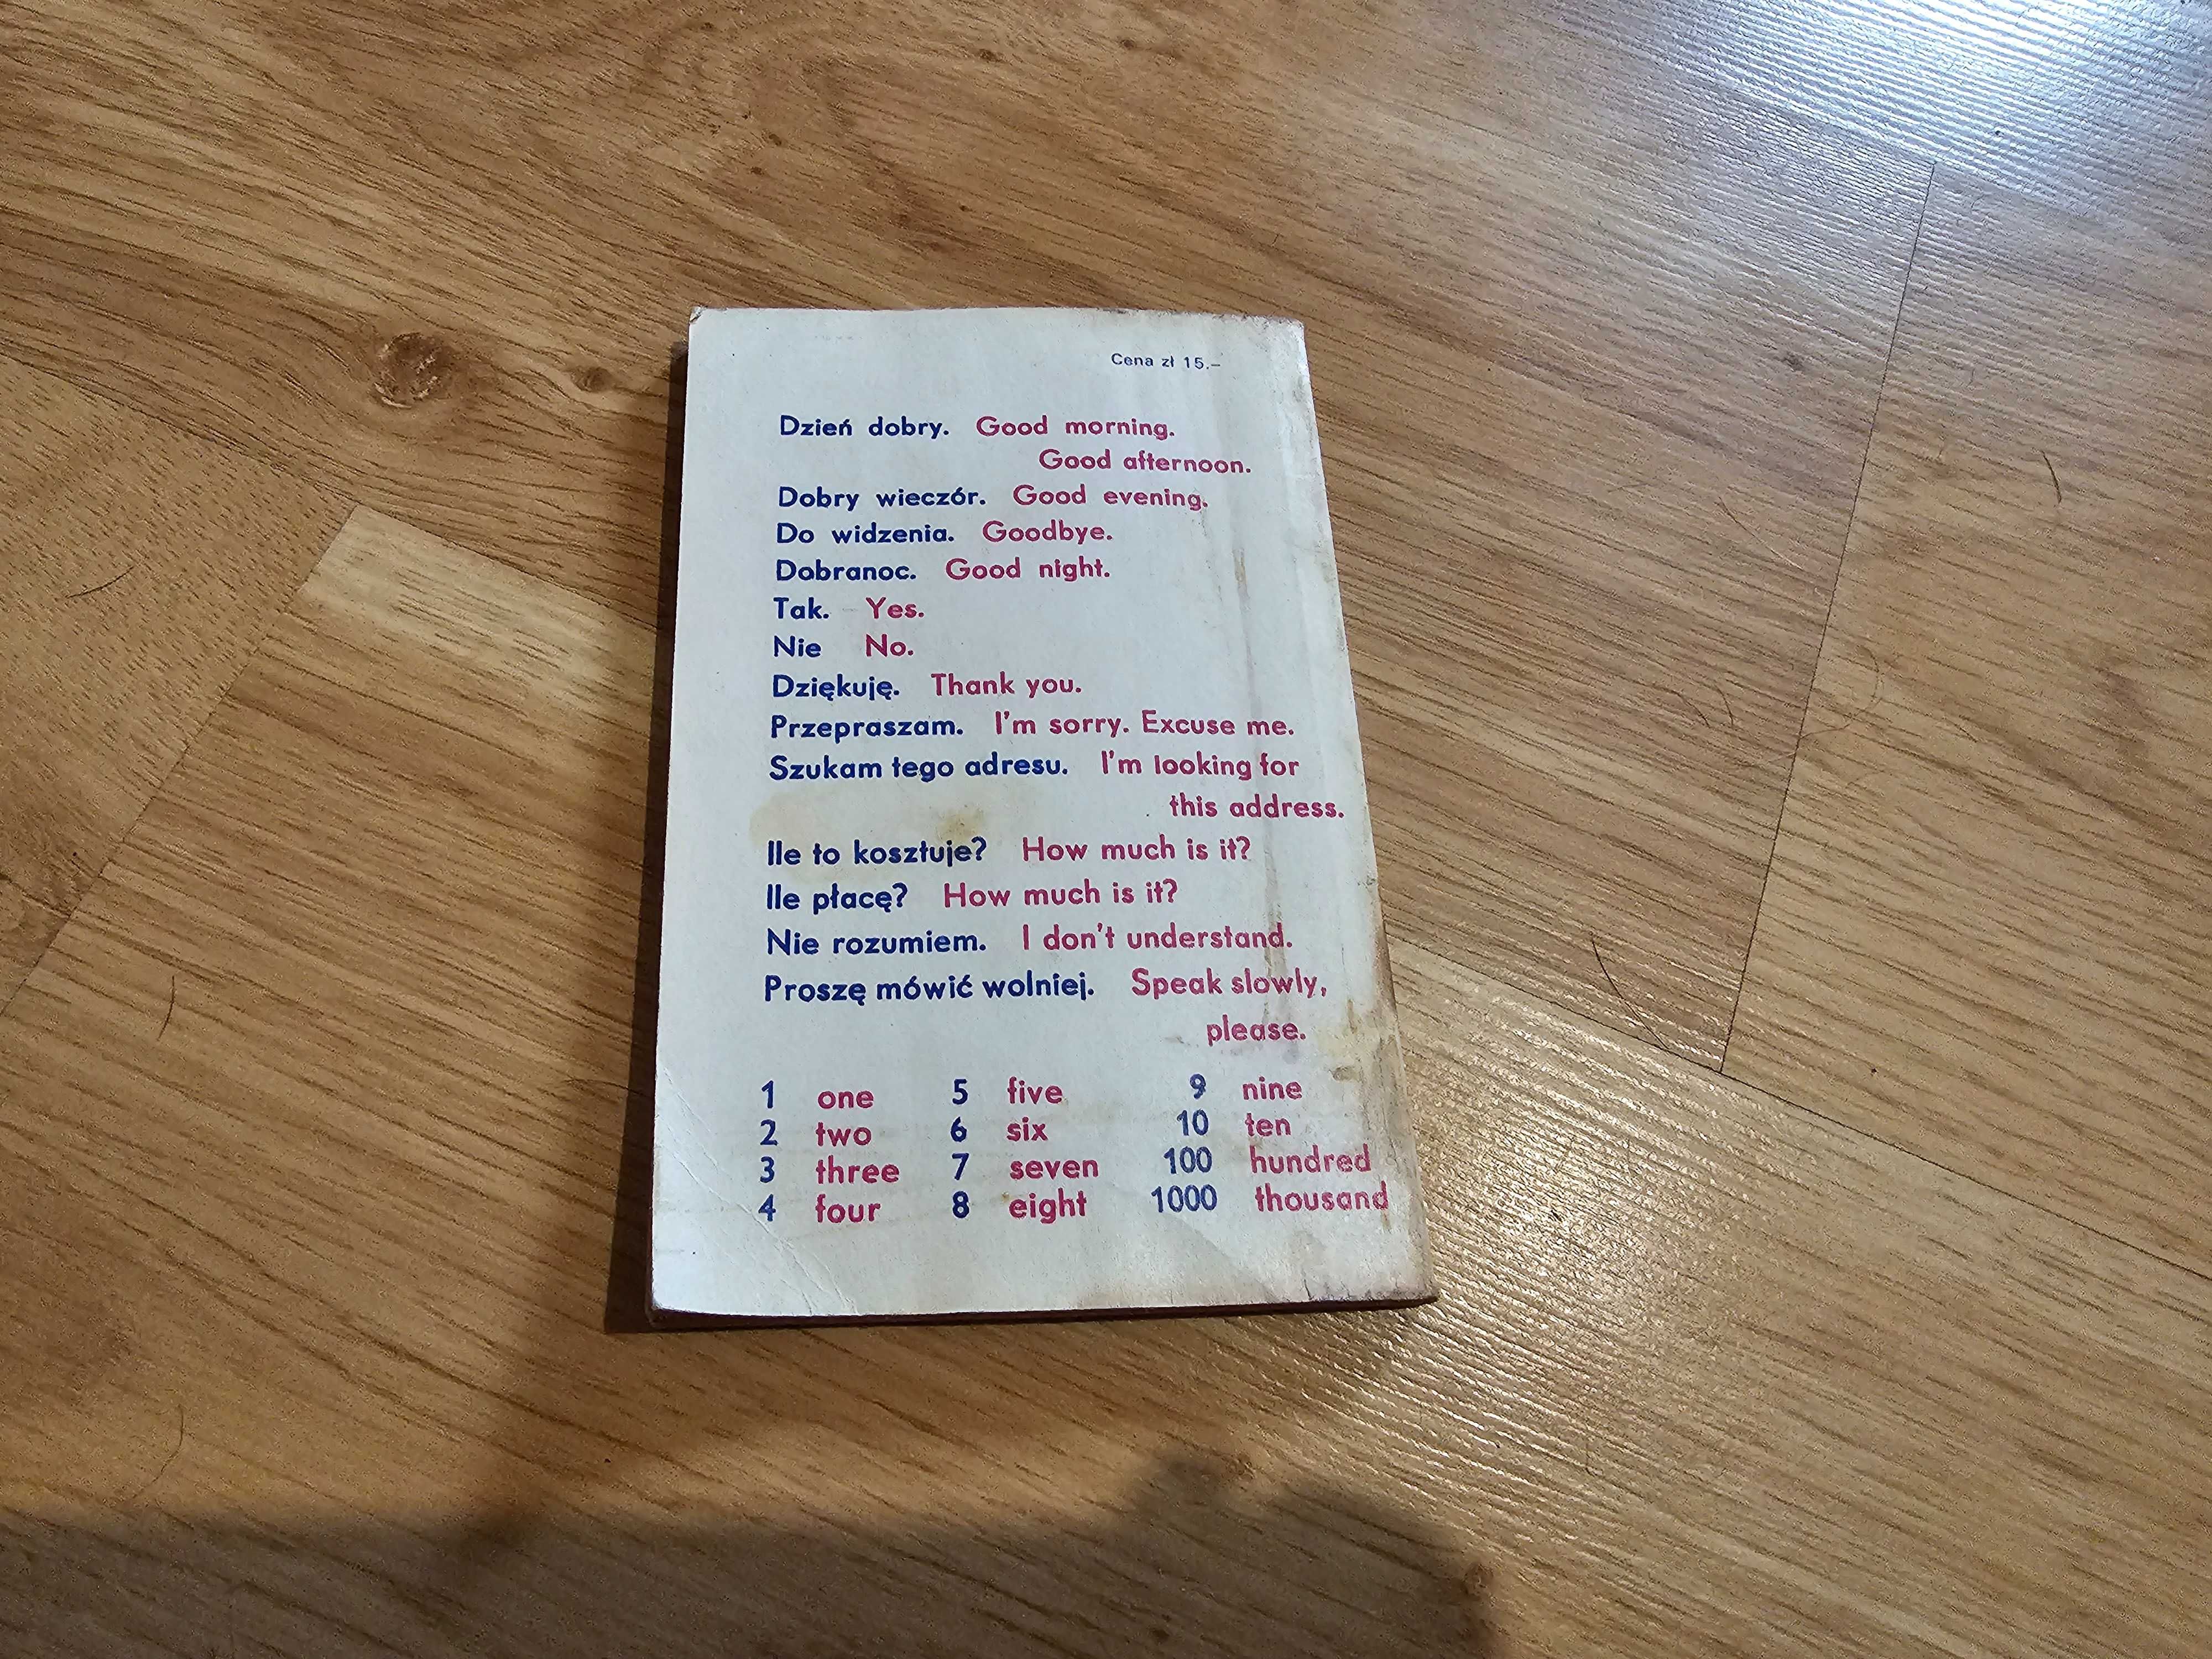 Cena zł 15.–
Dzień dobry. Good morning.
Good afternoon.
Dobry wieczór. Good evening.
Do widzenia. Goodbye.
Dobranoc. Good night.
Tak. Yes.
Nie No.
Dziękuję. Thank you.
Przepraszam. I'm sorry. Excuse me.
Szukam tego adresu. I'm looking for
this address.
Ile to kosztuje? How much is it?
Ile płacę? How much is it?
Nie rozumiem. I don't understand.
Proszę mówić wolniej. Speak slowly,
please.
1 one 5 five 9 nine
2 two 6 six 10 ten
3 three 7 seven 100 hundred
4 four 8 eight 1000 thousand